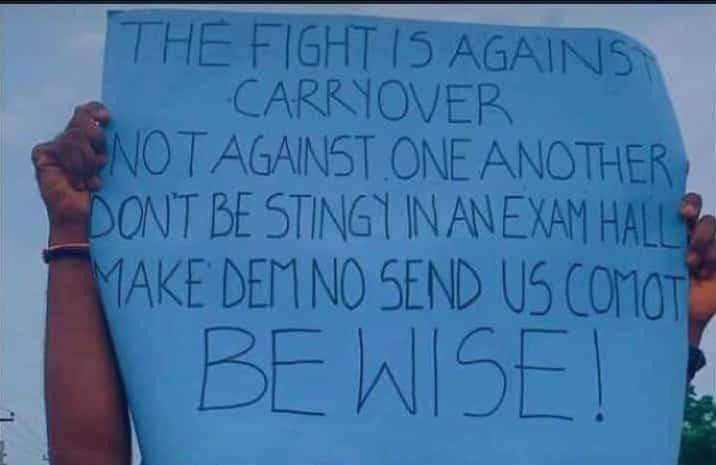 THE FIGHT IS AGAINST
CARRYOVER
NOT AGAINST ONE ANOTHER
DON'T BE STINGY IN AN EXAM HALL
MAKE DEM NO SEND US COMOT
BE WISE!